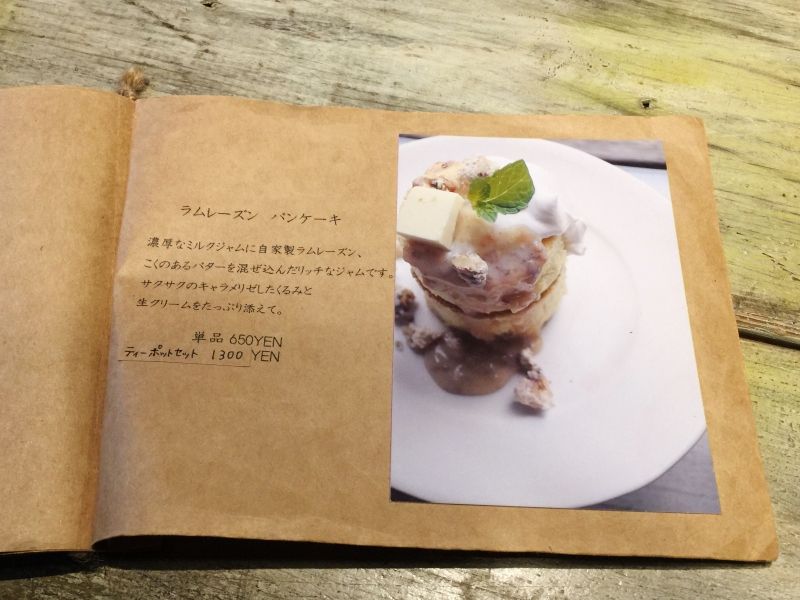 ラムレーズン パンケーキ
濃厚なミルクジャムに自家製ラムレーズン、
こくのあるバターを混ぜ込んだリッチなジャムです。
サクサクのキャラメリゼしたくるみと
生クリームをたっぷり添えて。
単品 650YEN
ティーポットセット 1300 YEN